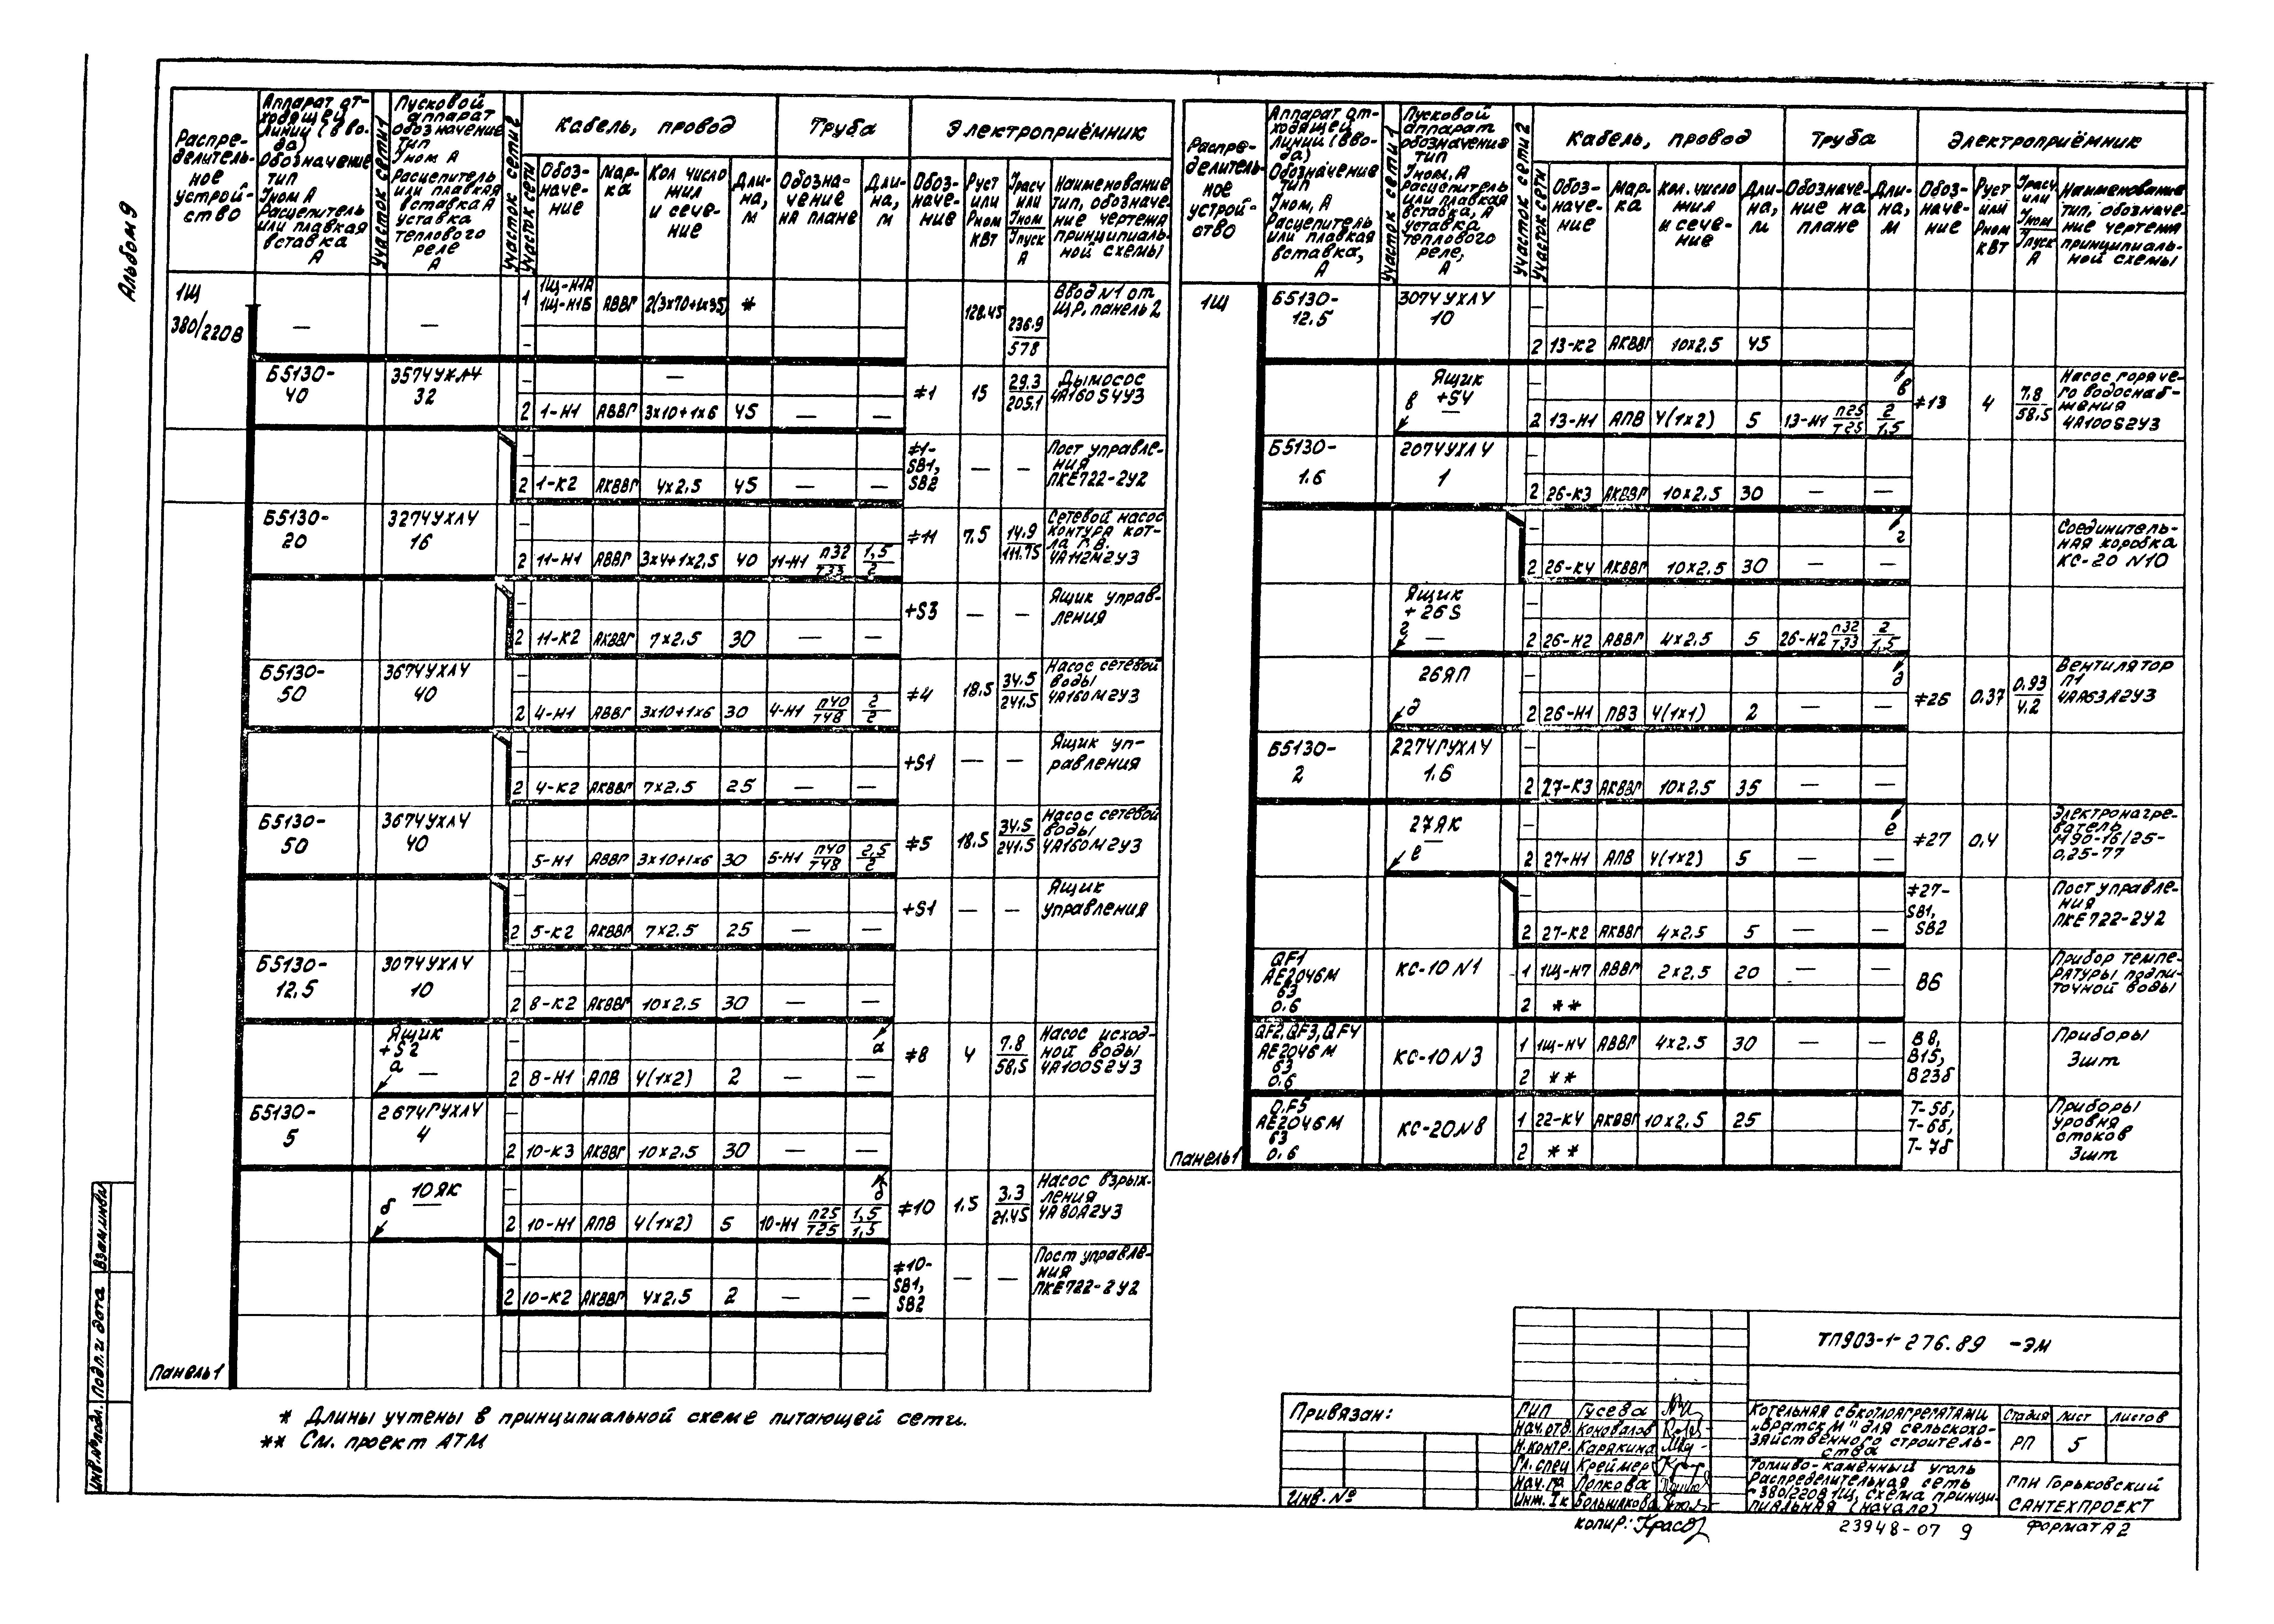 Альбом 9
Распре-
делитель-
ное
устрой-
ство
Аппарат от-
ходящей
линии (вво-
да)
Обозначение
тип
Iном А
Расцепитель
или плавкая
вставка
А
Участок сети 1
Пусковой
аппарат
обозначение
тип
Iном А
Расцепитель
или плавкая
вставка А
уставка
теплового
реле
А
Участок сети 2
Кабель, провод
Труба
Электроприёмник
Участок сети
Обоз-
наче-
ние
Мар-
ка
Кол число
жил
и сече-
ние
Дли-
на,
м
Обозна-
чение
на плане
Дли-
на,
м
Обоз-
наче-
ние
Руст
или
Рном
кВт
Iрасч
или
Iном
Iпуск
А
Наименование
тип, обозначе-
ние чертежа
принципиаль-
ной схемы
1Щ
380/220В
— —
1 1Щ-Н1А
1Щ-Н1Б АВВГ 2(3х70+1х35) *
128.45 236.9
578
Ввод N1 от
ЩР, панель 2
Б5130-
40
3574УХЛ4
32
2 1-Н1 АВВГ 3х10+1х6 45 — —
≠1 15 29.3
205.1
Дымосос
4А160S4У3
2 1-К2 АКВВГ 4х2.5 45 — —
≠1-
SB1,
SB2
— —
Пост управле-
ния
ПКЕ722-2У2
Б5130-
20
3274УХЛ4
16
2 11-Н1 АВВГ 3х4+1х2,5 40 11-Н1 П32
Т33
1,5
2
≠11 7.5 14.9
111.75
Сетевой насос
контура кот-
ла Г.В.
4А112М2У3
2 11-К2 АКВВГ 7х2.5 30 — —
+S3 — —
Ящик управ-
ления
Б5130-
50
3674УХЛ4
40
2 4-Н1 АВВГ 3х10+1х6 30 4-Н1 П40
Т48
2
2
≠4 18.5 34.5
241.5
Насос сетевой
воды
4А160М2У3
2 4-К2 АКВВГ 7х2.5 25 — —
+S1 — —
Ящик уп-
равления
Б5130-
50
3674УХЛ4
40
5-Н1 АВВГ 3х10+1х6 30 5-Н1 П40
Т48
2,5
2
≠5 18.5 34.5
241.5
Насос сетевой
воды
4А160М2У3
2 5-К2 АКВВГ 7х2.5 25 — —
+S1 — —
Ящик
управления
Б5130-
12,5
3074УХЛ4
10
2 8-К2 АКВВГ 10х2.5 30 — —
Ящик
+S2
а —
2 8-Н1 АПВ 4(1х2) 2 — —
а
≠8 4 7.8
58.5
Насос исход-
ной воды
4А100S2У3
Б5130-
5
2674ГУХЛ4
4
2 10-К3 АКВВГ 10х2.5 30 — —
10ЯК
б
2 10-Н1 АПВ 4(1х2) 5 10-Н1 П25
Т25
1,5
1,5
б
≠10 1.5 3.3
21.45
Насос взрых-
ления
4А80А2У3
2 10-К2 АКВВГ 4х2.5 2 — —
≠10-
SB1,
SB2
— —
Пост управле-
ния
ПКЕ722-2У2
Панель 1
* Длины учтены в принципиальной схеме питающей сети.
** См. проект АТМ
Распре-
делитель-
ное
устрой-
ство
Аппарат от-
ходящей
линии (вво-
да)
Обозначение
тип
Iном, А
Расцепитель
или плавкая
вставка,
А
Участок сети 1
Пусковой
аппарат
обозначение
тип
Iном, А
Расцепитель
или плавкая
вставка, А
уставка
теплового
реле,
А
Участок сети 2
Кабель, провод
Труба
Электроприёмник
Участок сети
Обоз-
наче-
ние
Мар-
ка
Кол. число
жил
и сече-
ние
Дли-
на,
м
Обозначе-
ние на
плане
Дли-
на,
м
Обоз-
наче-
ние
Руст
или
Рном
кВт
Iрасч
или
Iном
Iпуск
А
Наименование
тип, обозначе-
ние чертежа
принципиаль-
ной схемы
1Щ
Б5130-
12.5
3074УХЛ4
10
2 13-К2 АКВВГ 10х2.5 45
Ящик
+S4
в —
2 13-Н1 АПВ 4(1х2) 5 13-Н1 П25
Т25
2
1,5
в
≠13 4 7.8
58.5
Насос горяче-
го водоснаб-
жения
4А100S2У3
Б5130-
1.6
2074УХЛ4
1
2 26-К3 АКВВГ 10х2.5 30 — —
2 26-К4 АКВВГ 10х2.5 30 — —
г
Соединитель-
ная коробка
КС-20 N10
Ящик
+26S
г —
2 26-Н2 АВВГ 4х2.5 5 26-Н2 П32
Т33
2
1,5
26ЯП
д
2 26-Н1 ПВ3 4(1х1) 2 — —
д
≠26 0,37 0,93
4.2
Вентилятор
П1
4АА63А2У3
Б5130-
2
2274ГУХЛ4
1.6
2 27-К3 АКВВГ 10х2.5 35 — —
27ЯК
е
2 27-Н1 АПВ 4(1х2) 5 — —
е
≠27 0,4
Электронагре-
ватель
М90-16/25-
0,25-77
2 27-К2 АКВВГ 4х2.5 5 — —
≠27-
SB1,
SB2
Пост управле-
ния
ПКЕ722-2У2
QF1
АЕ2046М
63
0.6
КС-10 N1
1 1Щ-Н7 АВВГ 2х2.5 20 — —
2 **
В6
Прибор темпе-
ратуры подпи-
точной воды
QF2, QF3, QF4
АЕ2046М
63
0.6
КС-10 N3
1 1Щ-Н4 АВВГ 4х2.5 30 — —
2 **
В8,
В15,
В23б
Приборы
3шт
QF5
АЕ2046М
63
0.6
КС-20 N8
1 22-К4 АКВВГ 10х2.5 25
2 **
Т-5б,
Т-6б,
Т-7б
Приборы
уровня
стоков
3шт
Панель 1
ТП903-1-276.89 -ЭМ
Привязан:
Инв. №
ГИП Гусева
Нач.отд. Коновалов
Н.контр. Карякина
Гл.спец Креймер
Нач.гр Попкова
Инж.Iк Большакова
Котельная с 6 котлоагрегатами
„Братск М" для сельскохо-
зяйственного строитель-
ства
Топливо-каменный уголь
Стадия Лист Листов
РП 5
Распределительная сеть
~380/220В 1Щ, схема принци-
пиальная (начало)
ГПИ Горьковский
САНТЕХПРОЕКТ
Копир:
23948-07 9
Формат А2
Инв.№ подл. Подп. и дата Взам.инв.№